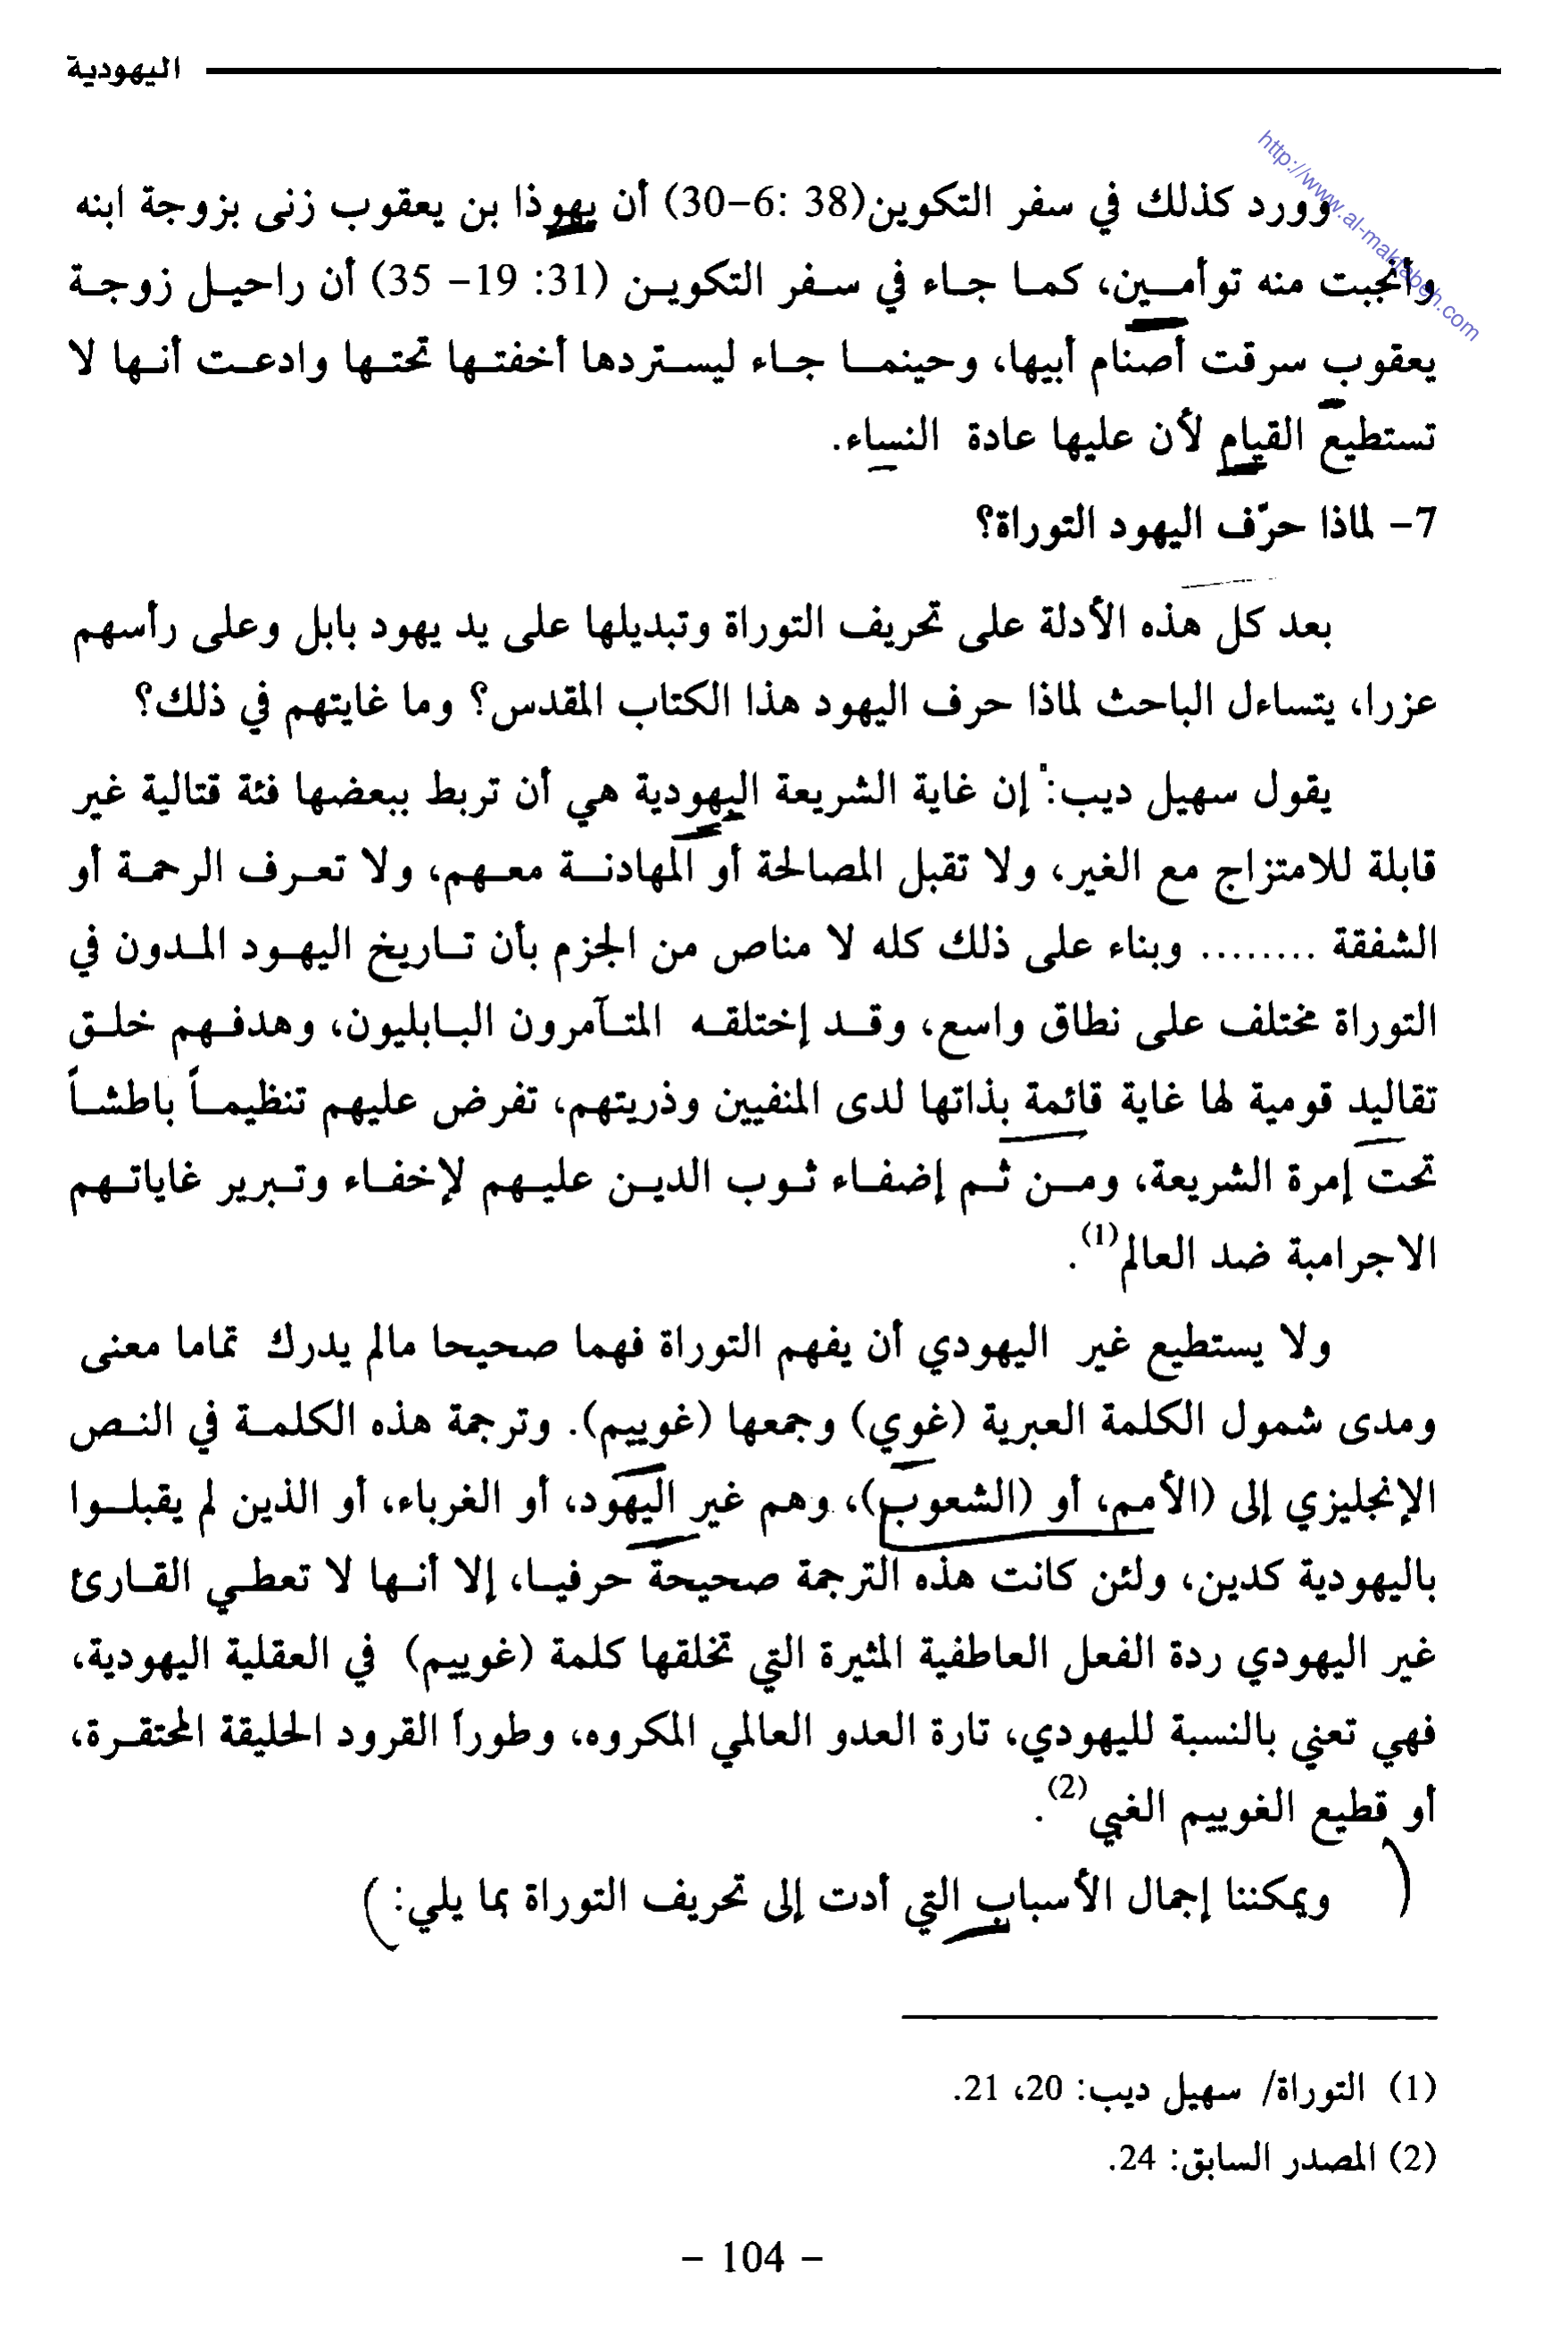 اليهودية
http://www.al-maktabeh.com
وورد كذلك في سفر التكوين(38 :6-30) أن يهوذا بن يعقوب زنى بزوجة ابنه
وأنجبت منه توأمين، كما جاء في سفر التكوين (31: 19- 35) أن راحيل زوجة
يعقوب سرقت أصنام أبيها، وحينما جاء ليستردها أخفتها تحتها وادعت أنها لا
تستطيع القيام لأن عليها عادة النساء.
7- لماذا حرّف اليهود التوراة؟
بعد كل هذه الأدلة على تحريف التوراة وتبديلها على يد يهود بابل وعلى رأسهم
عزرا، يتساءل الباحث لماذا حرف اليهود هذا الكتاب المقدس؟ وما غايتهم في ذلك؟
يقول سهيل ديب: إن غاية الشريعة اليهودية هي أن تربط ببعضها فئة قتالية غير
قابلة للامتزاج مع الغير، ولا تقبل المصالحة أو المهادنة معهم، ولا تعرف الرحمة أو
الشفقة ........ وبناء على ذلك كله لا مناص من الجزم بأن تاريخ اليهود المدون في
التوراة مختلف على نطاق واسع، وقد إختلقه المتآمرون البابليون، وهدفهم خلق
تقاليد قومية لها غاية قائمة بذاتها لدى المنفيين وذريتهم، تفرض عليهم تنظيماً باطشاً
تحت إمرة الشريعة، ومن ثم إضفاء ثوب الدين عليهم لإخفاء وتبرير غاياتهم
الاجرامية ضد العالم(1).
ولا يستطيع غير اليهودي أن يفهم التوراة فهما صحيحا مالم يدرك تماما معنى
ومدى شمول الكلمة العبرية (غوي) وجمعها (غوييم). وترجمة هذه الكلمة في النص
الإنجليزي إلى (الأمم، أو (الشعوب)، وهم غير اليهود، أو الغرباء، أو الذين لم يقبلوا
باليهودية كدين، ولئن كانت هذه الترجمة صحيحة حرفيا، إلا أنها لا تعطي القارئ
غير اليهودي ردة الفعل العاطفية المثيرة التي تخلقها كلمة (غوييم) في العقلية اليهودية،
فهي تعني بالنسبة لليهودي، تارة العدو العالمي المكروه، وطوراً القرود الحليقة المحتقرة،
أو قطيع الغوييم الغبي(2).
ويمكننا إجمال الأسباب التي أدت إلى تحريف التوراة بما يلي:
(1) التوراة/ سهيل ديب: 20، 21.
(2) المصدر السابق: 24.
- 104 -